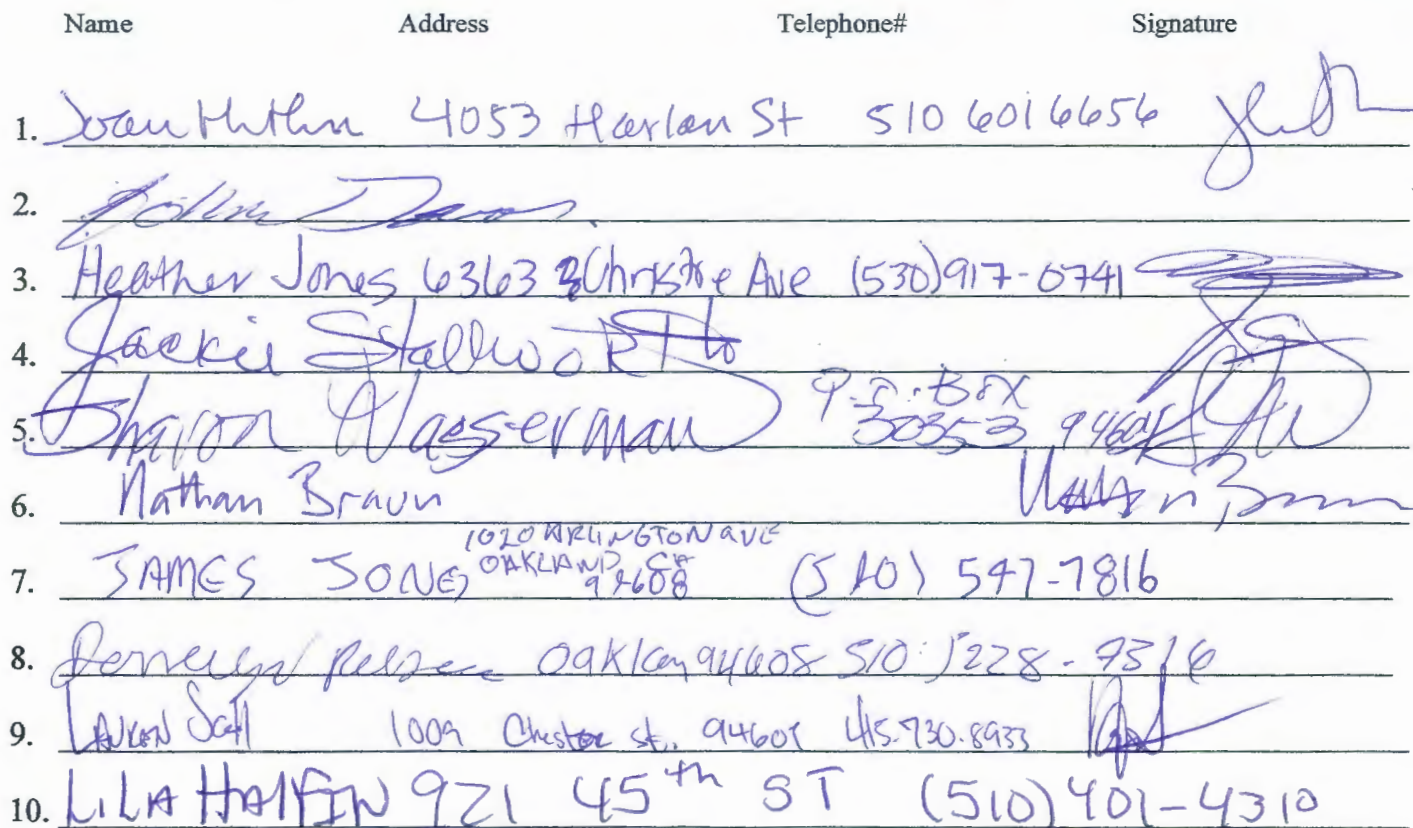 Name Address Telephone# Signature
1. Joan 4053 Harlan St 510 601 6656
2.
3. Heather Jones 6363 Christie Ave (530)917-0741
4. Jackie Stallworth
5. Sharon Wasserman P.O. Box 30353 94604
6. Nathan Braun Nathan Braun
7. JAMES JONES 1020 ARLINGTON AVE OAKLAND, CA 94608 (510) 547-7816
8. 94608 510 228-9316
9. LAUREN Scott 1009 Chester st. 94607 415.730.8933
10. LILA HALFIN 921 45th ST (510) 401-4310